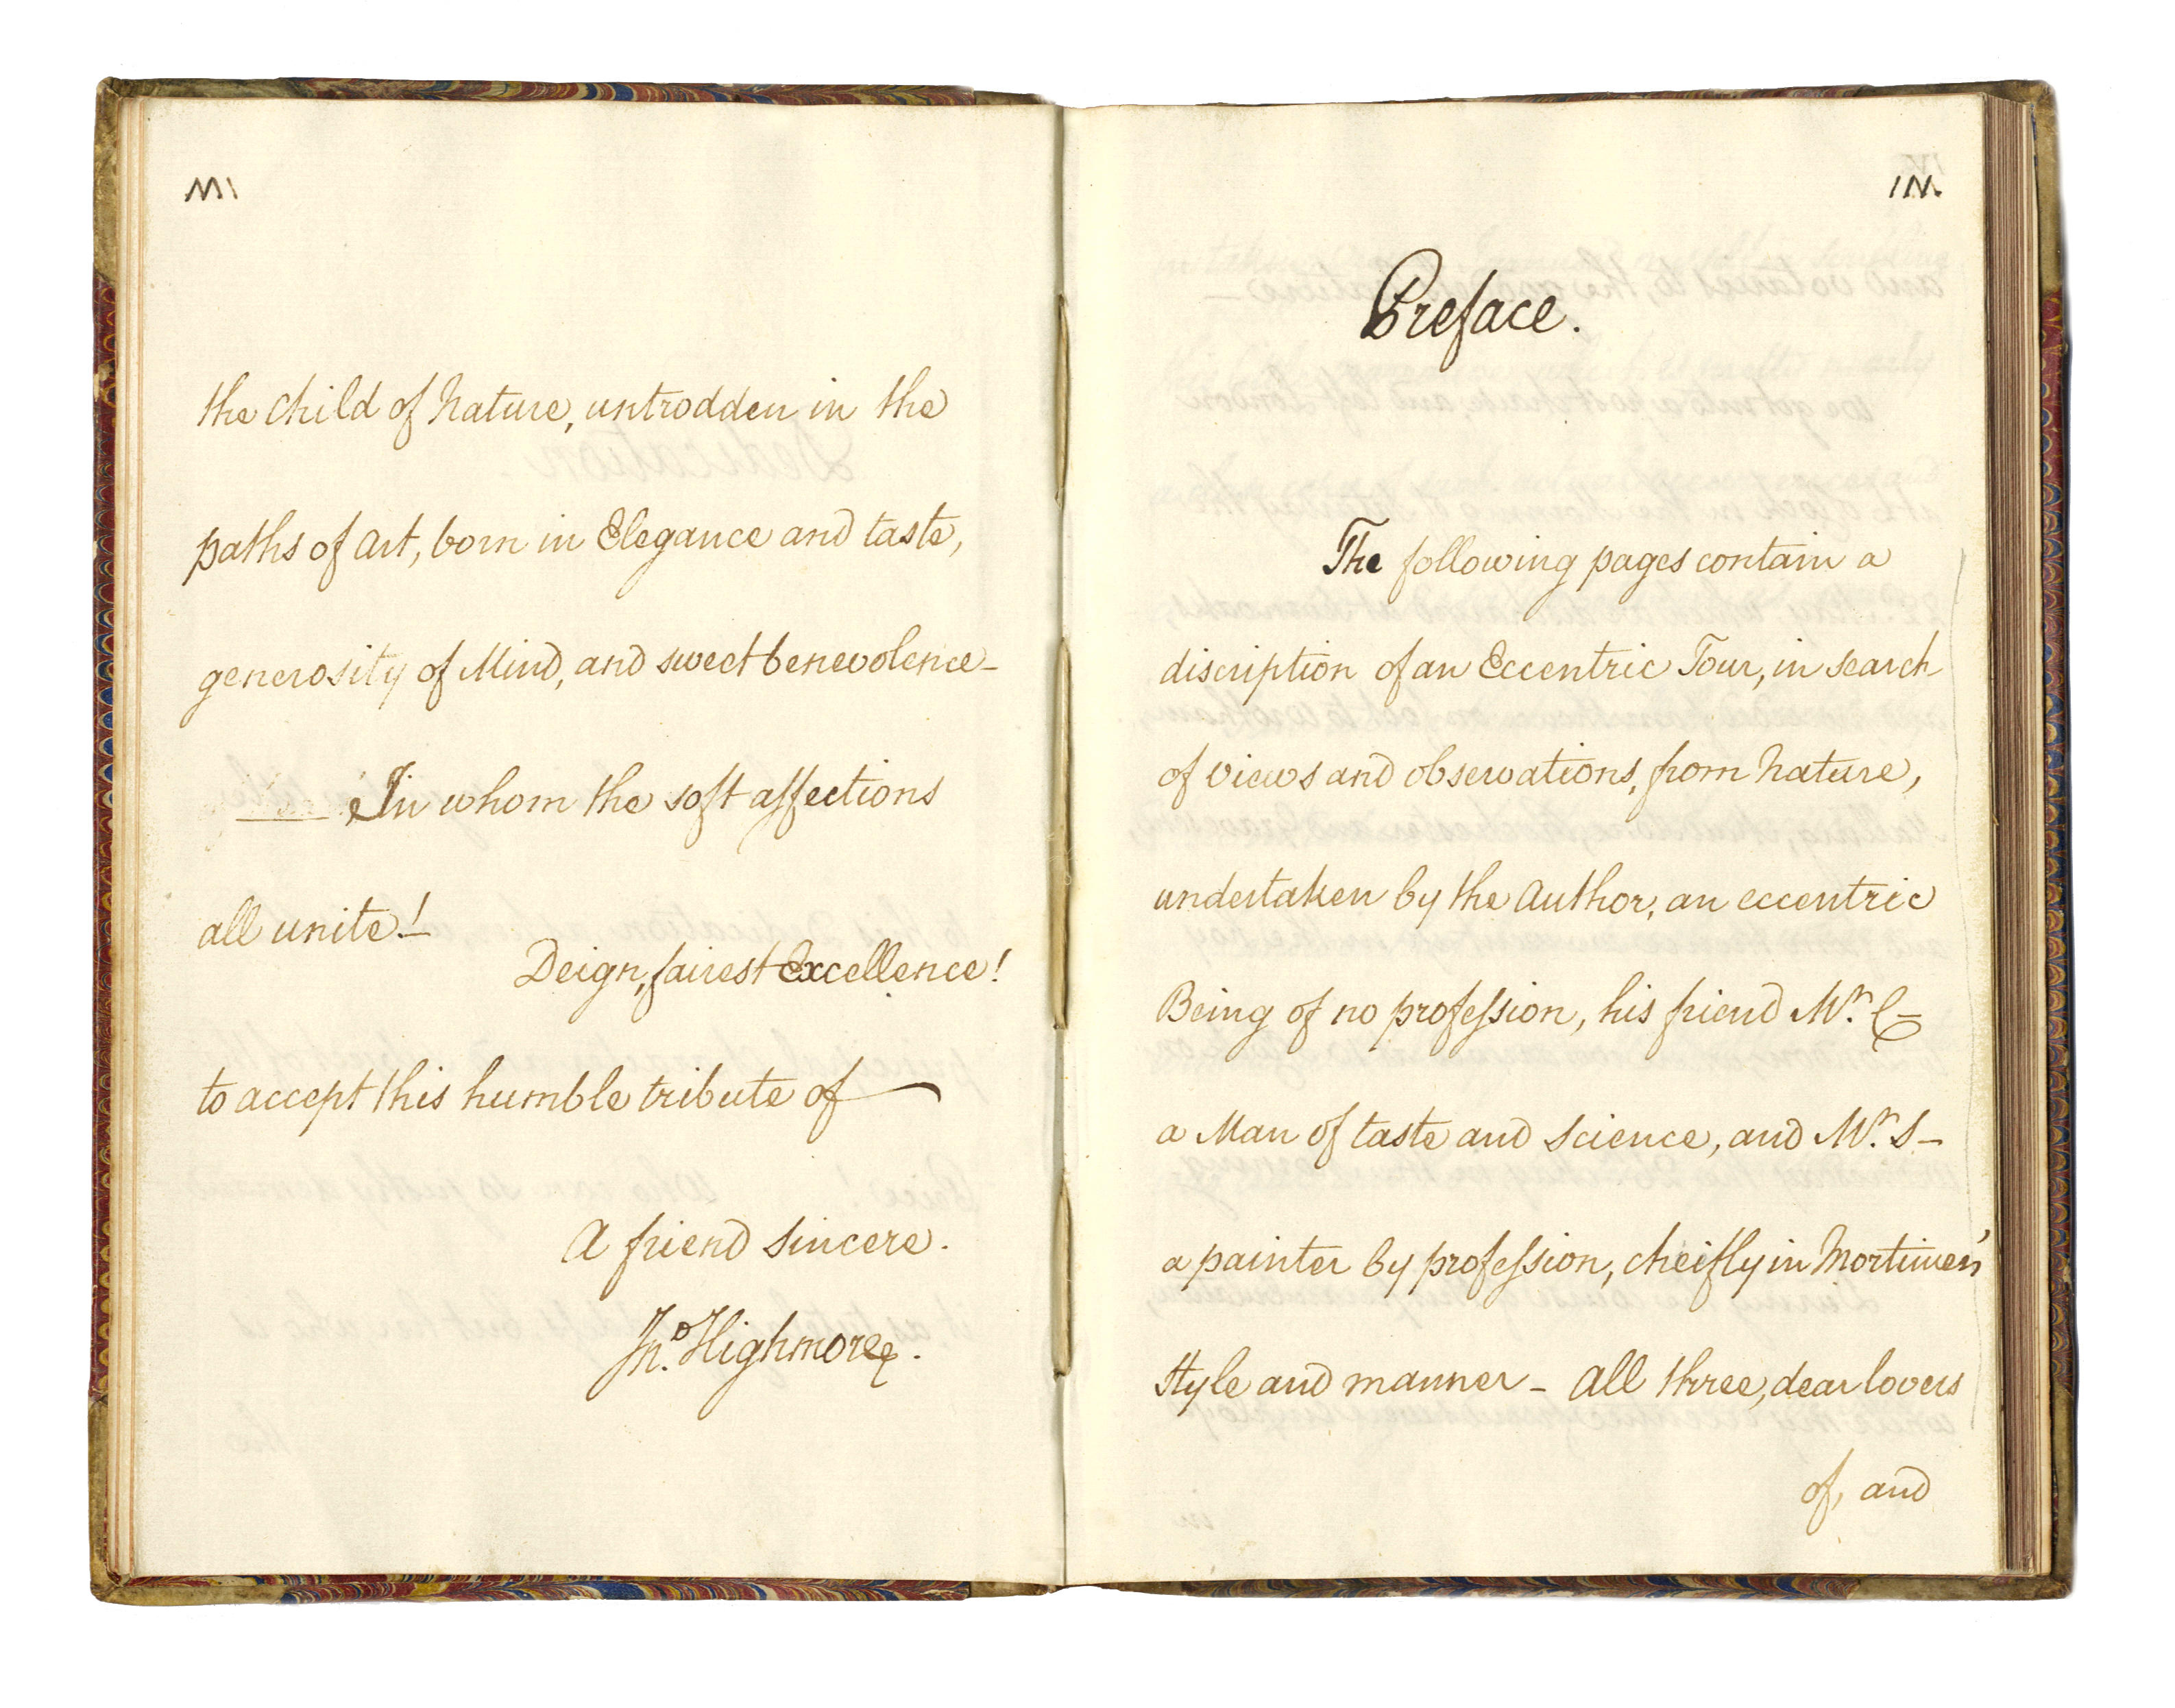 the Child of Nature, untrodden in the
paths of Art, born in Elegance and taste,
generosity of Mind, and sweet benevolence –
In whom the soft affections
all unite! –
Deign, fairest Excellence!
to accept this humble tribute of —
A friend sincere.
Jn.º Highmore.
Preface.
The following pages contain a
discription of an Eccentric Tour, in search
of views and observations, from Nature,
undertaken by the Author, an eccentric
Being of no profession, his friend Mr. C–
a Man of taste and Science, and Mr. S–
a painter by profession, cheifly in Mortimer's
Style and manner – All three, dear lovers
of, and